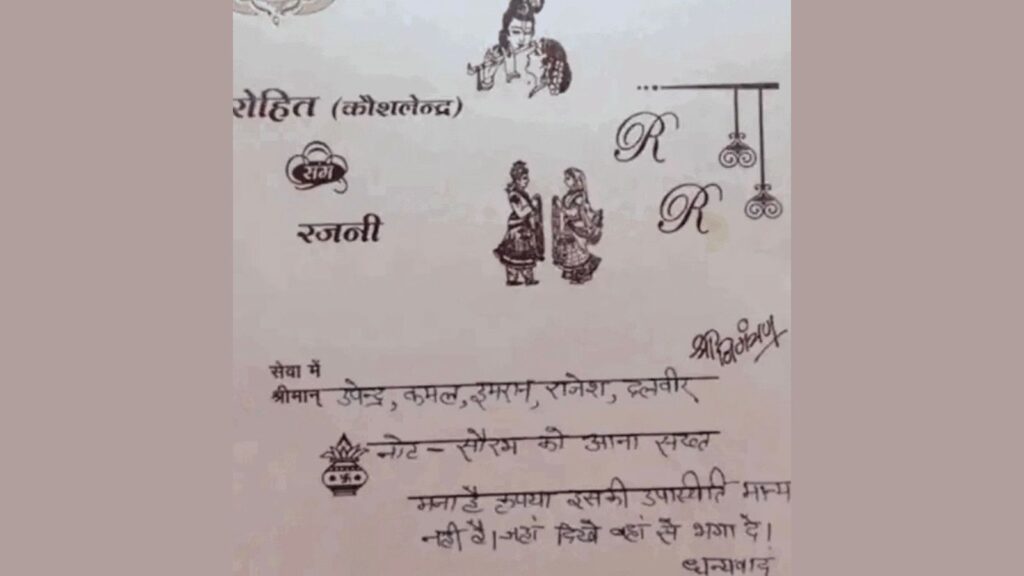 रोहित (कौशलेन्द्र)
संग
रजनी
R
R
श्री निमंत्रण
सेवा में
श्रीमान् उपेन्द्र, कमल, इमरान, राजेश, दलवीर
नोट - सौरभ को आना सख्त
मना है कृपया इसकी उपस्थिति मान्य
नही है। जहां दिखे वहां से भगा दे।
धन्यवाद